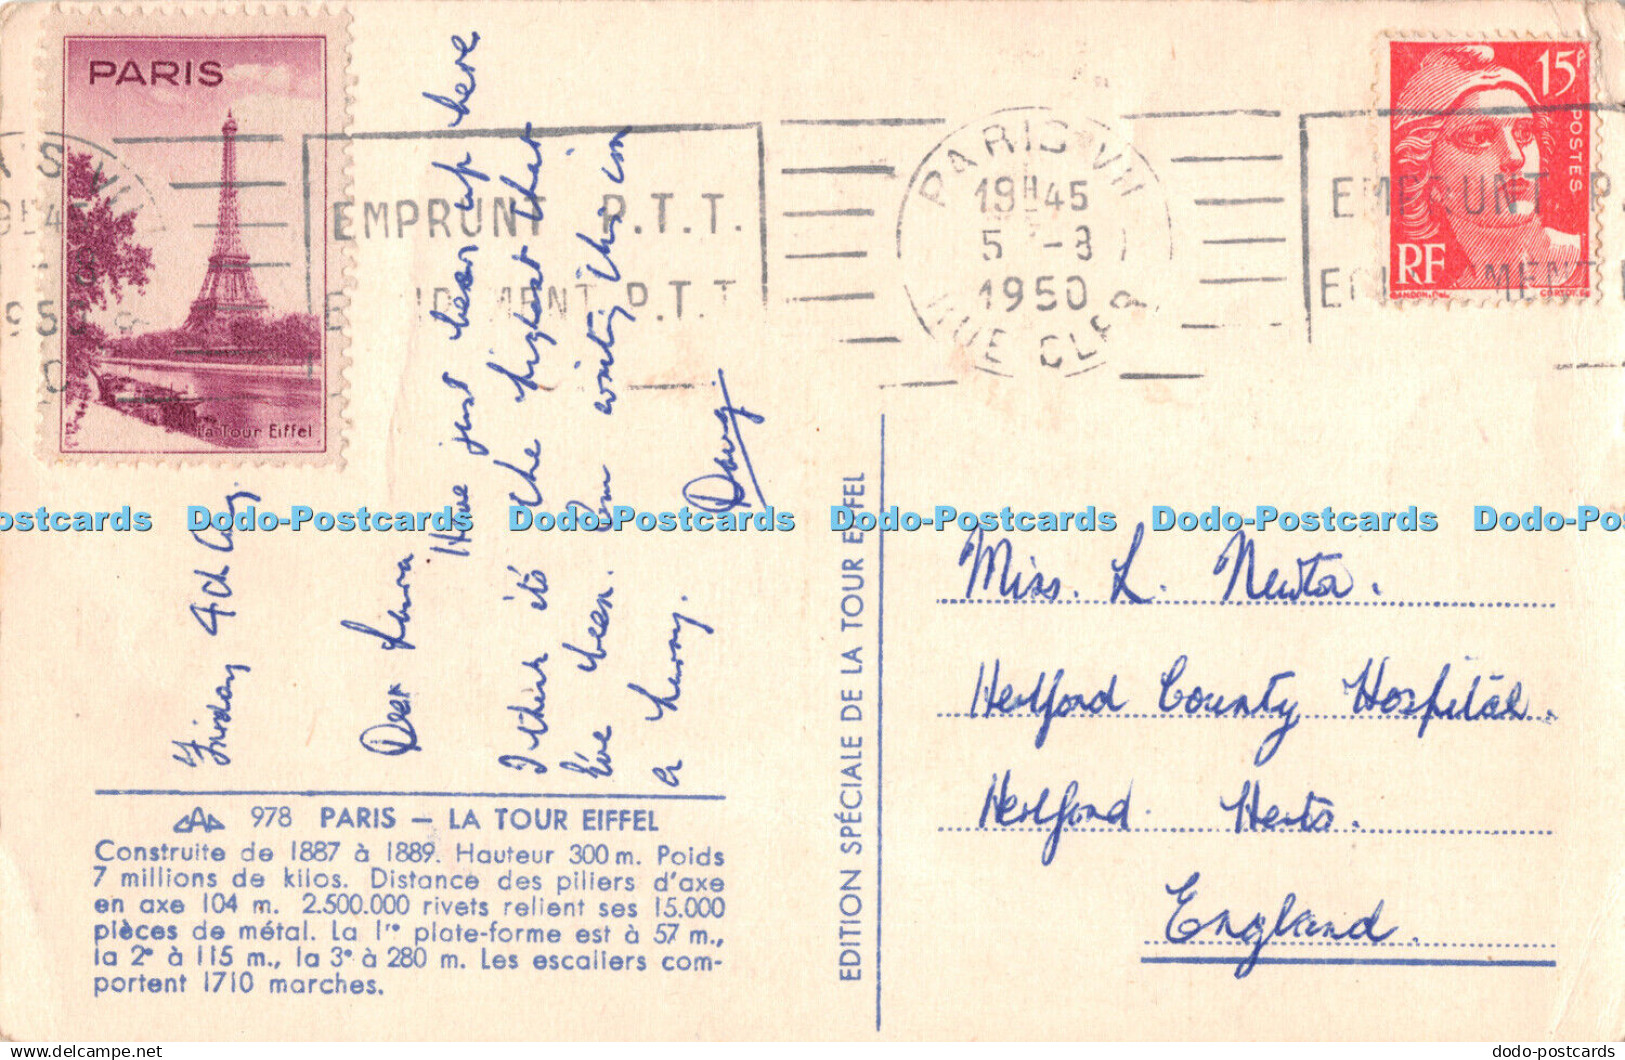 PARIS
La Tour Eiffel
EMPRUNT P.T.T.
MENT P.T.T
PARIS VII
19H45
5 -8
1950
RUE CLER
EMPRUNT P.
15F
POSTES
RF
GANDON. Del.
CORTOT. Sc
Friday 4th Aug.
Dear Laura
Have just been up here
I think it's the highest that
I've been. Am writing this in
a hurry.
Doug
978 PARIS — LA TOUR EIFFEL
Construite de 1887 à 1889. Hauteur 300 m. Poids
7 millions de kilos. Distance des piliers d'axe
en axe 104 m. 2.500.000 rivets relient ses 15.000
pièces de métal. La 1re plate-forme est à 57 m.,
la 2e à 115 m., la 3e à 280 m. Les escaliers com-
portent 1710 marches.
EDITION SPÉCIALE DE LA TOUR EIFFEL
Miss. L. Newton.
Hertford County Hospital.
Hertford. Herts.
England.
ostcards Dodo-Postcards Dodo-Postcards Dodo-Postcards Dodo-Postcards Dodo-Pos
dodo-postcards
dodo-postcards